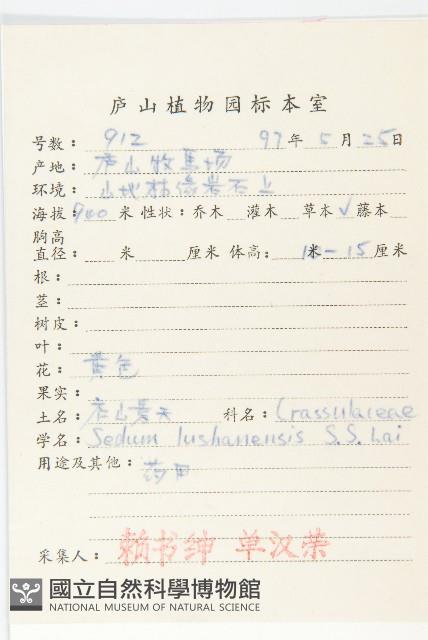 庐山植物园标本室
号数： 912 97年5月25日
产地： 庐山牧马场
环境： 山地林缘岩石上
海拔：900米 性状：乔木 灌木 草本√藤本
胸高
直径： 米 厘米 体高： 10－15厘米
根：
茎：
树皮：
叶：
花： 黄色
果实：
土名： 庐山景天 科名：Crassulaceae
学名： Sedum lushanensis S.S. Lai
用途及其他： 药用
采集人： 赖书绅 单汉荣
國立自然科學博物館
NATIONAL MUSEUM OF NATURAL SCIENCE